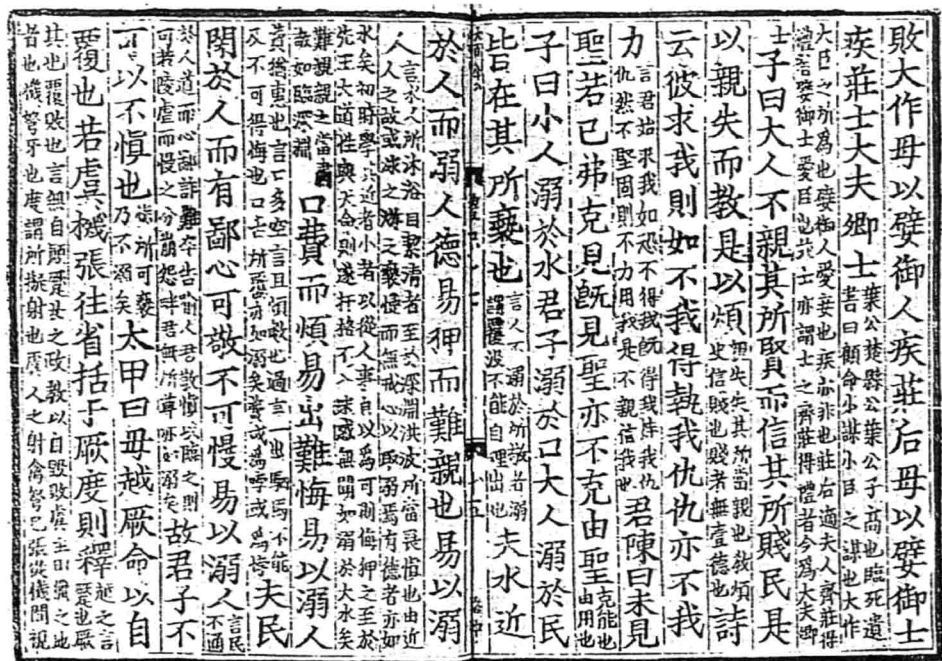 敗大作毋以嬖御人疾莊后毋以嬖御士
疾莊士大夫卿士葉公楚縣公葉公子高也臨死遺書曰顧命小謀小臣之謀也大作
大臣之所為也嬖御人愛妾也疾亦非也莊后適夫人齊莊得禮者嬖御士愛臣也莊士亦謂士之齊莊得禮者今為大夫卿
士子曰大人不親其所賢而信其所賤民是
以親失而教是以煩親失失其所當親也教煩由信賤也賤者無壹德也詩
云彼求我則如不我得執我仇仇亦不我
力言君始求我如恐不得我既得我持我仇仇然不堅固則不力用我是不親信我也君陳曰未見
聖若已弗克見既見聖亦不克由聖克能也由用也
子曰小人溺於水君子溺於口大人溺於民
皆在其所褻也言人不溺於所敬者溺謂覆沒不能自理出也夫水近
於人而溺人德易狎而難親也易以溺
人言水人所沐浴自絜清者至於深淵洪波所當畏慎也由近人之故或泳之游之褻慢而無戒心以取溺焉有德者亦如
水矣初時學其近者小者以從人事自以為可則侮狎之至於先王大道性與天命則遂扞格不入迷惑無聞如溺於大水矣
難親親之當肅敬如臨深淵口費而煩易出難悔易以溺人
費猶惠也言口多空言且煩數也過言一出駟馬不能及不可得悔也口舌所覆亦如溺矣費或為哱或為悖夫民
閉於人而有鄙心可敬不可慢易以溺人言民不通
於人道而心鄙詐難卒告諭人君敬慎以臨之則可若陵虐而慢之分崩怨畔君無所尊亦如溺矣故君子不
可以不慎也慎所可褻乃不溺矣太甲曰毋越厥命以自
覆也若虞機張往省括于厥度則釋越之言蹷也厥
其也覆敗也言無自顛蹷女之政教以自毀敗虞主田獵之地者也機弩牙也度謂所擬射也虞人之射禽弩已張從機間視